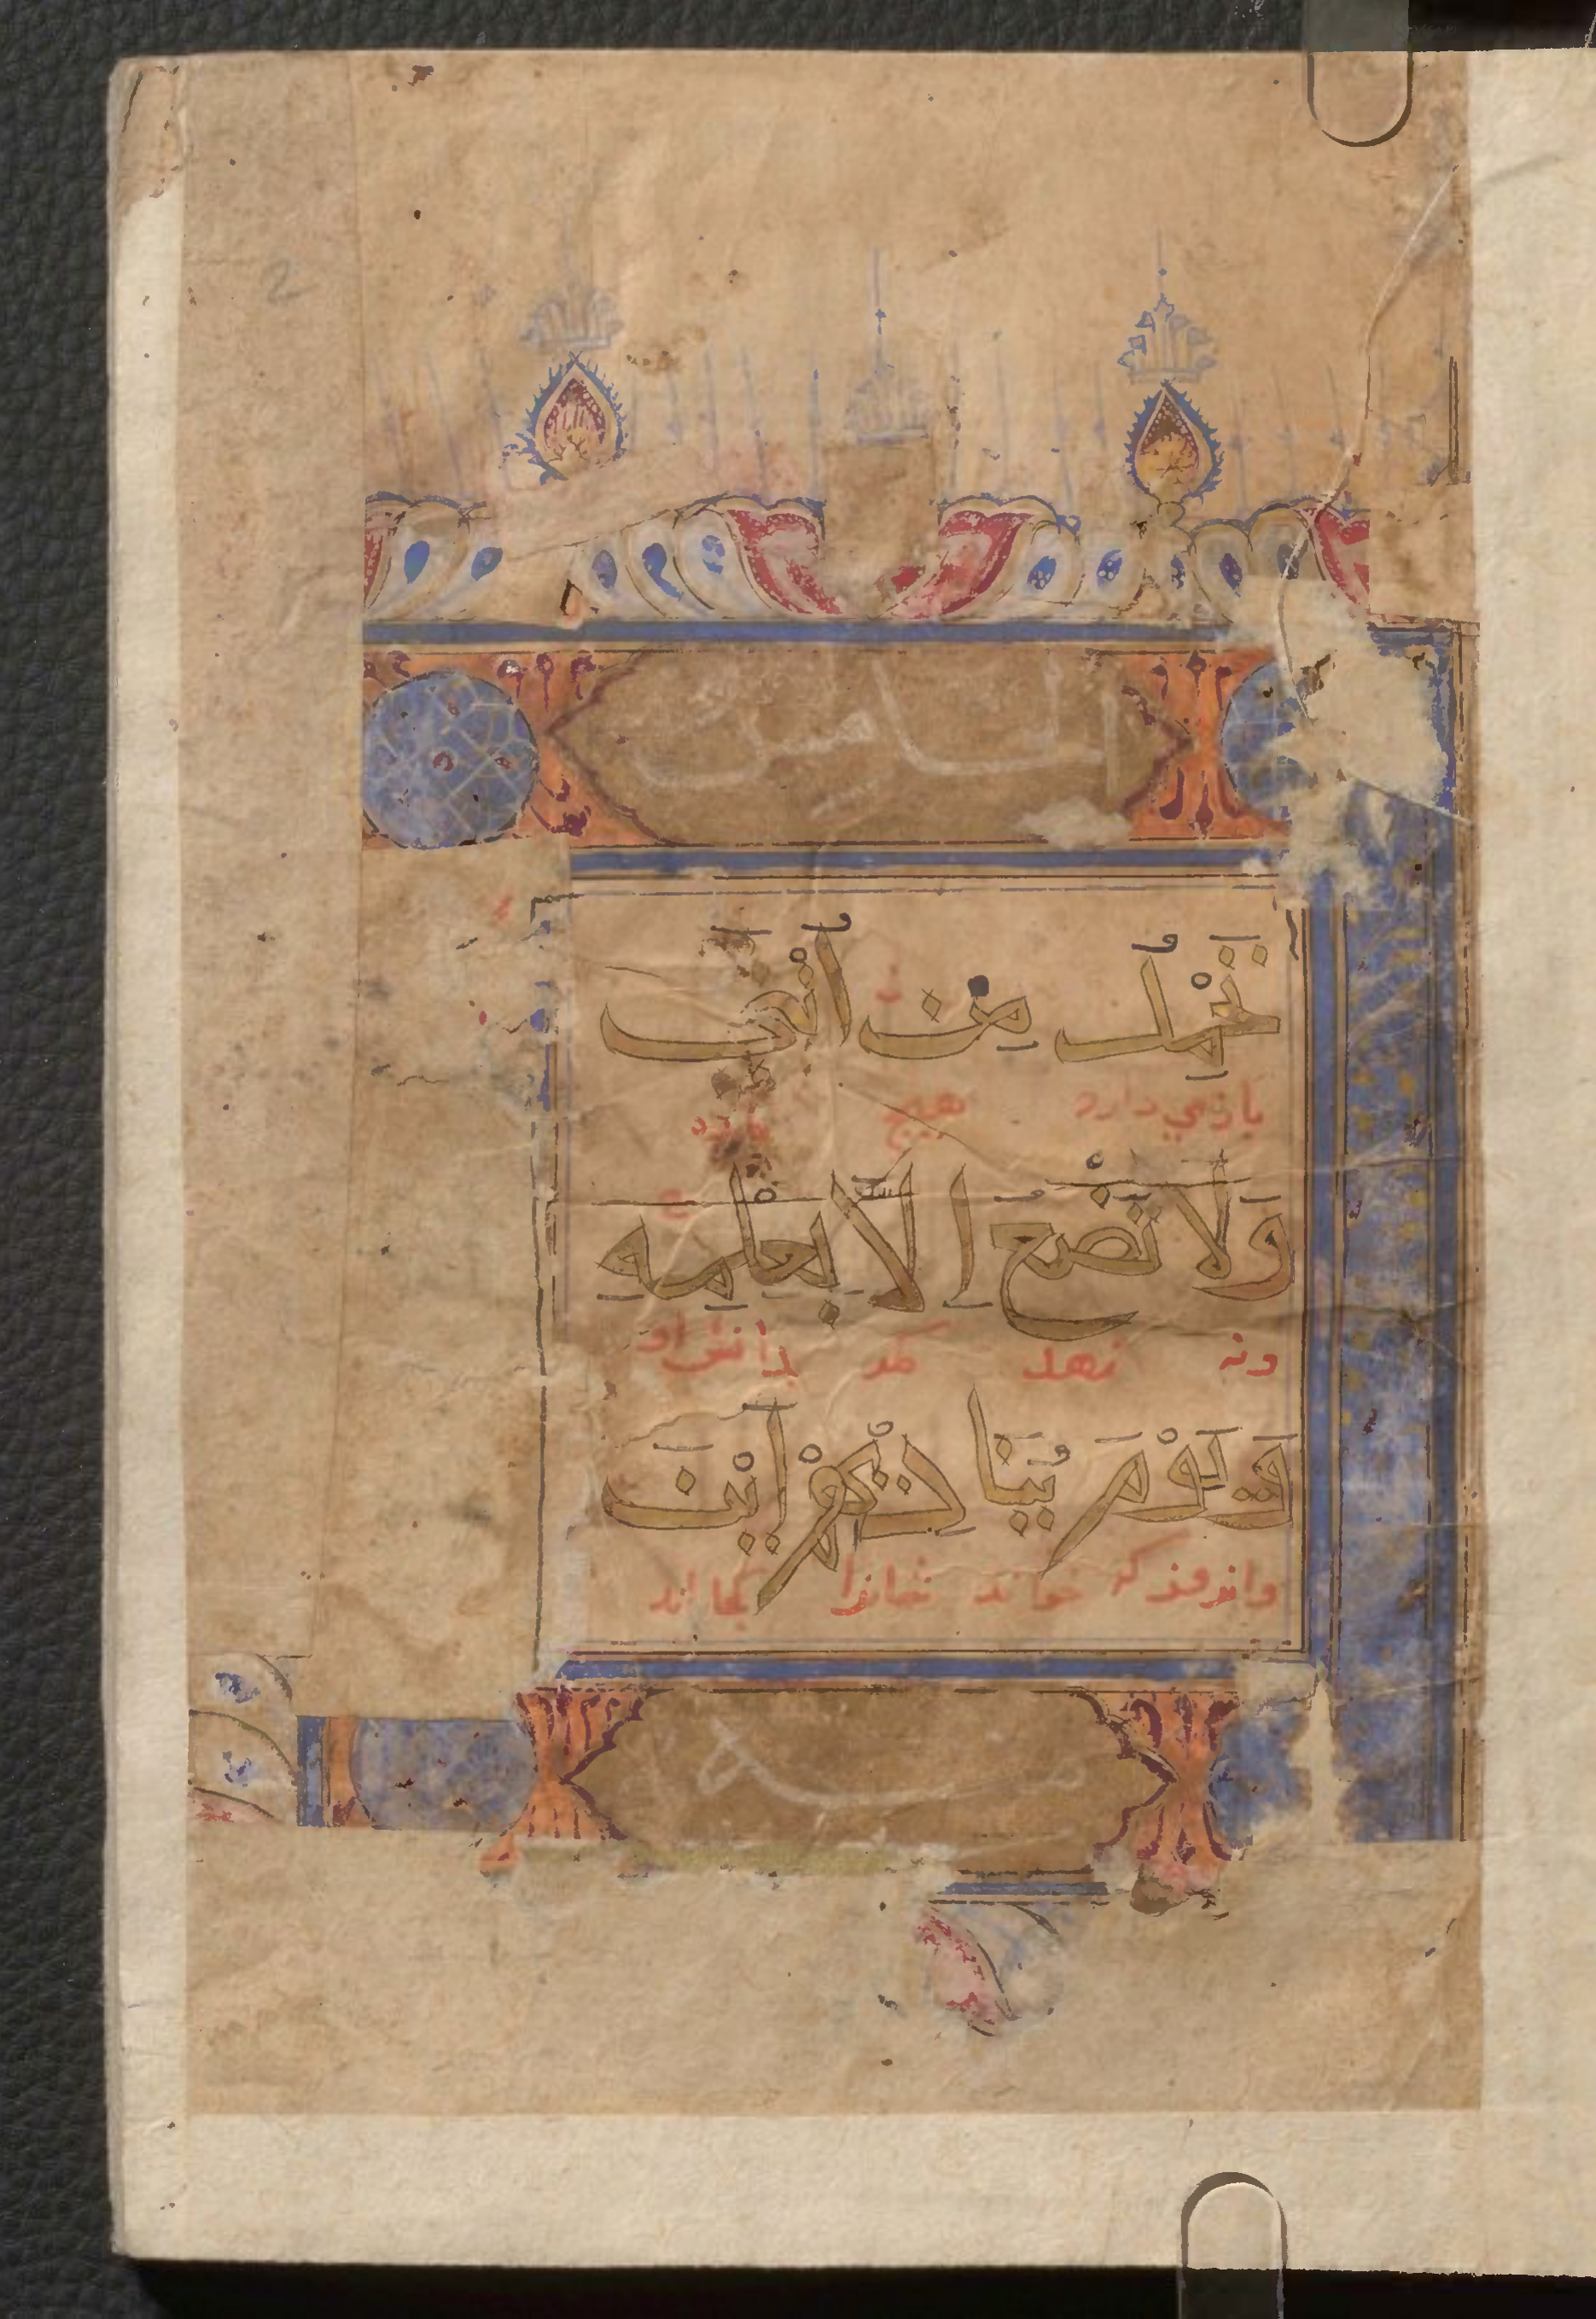 2
تَحْمِلُ مِنْ اُنْثَى
بازمي دارد هيچ ماده
وَلَا تَضَعُ اِلَّا بِعِلْمِهِ
ونه نهد مكر بدانش او
وَيَوْمَ يُنَادِيهِمْ اَيْنَ
وانروز كه خواند شانرا كجااند